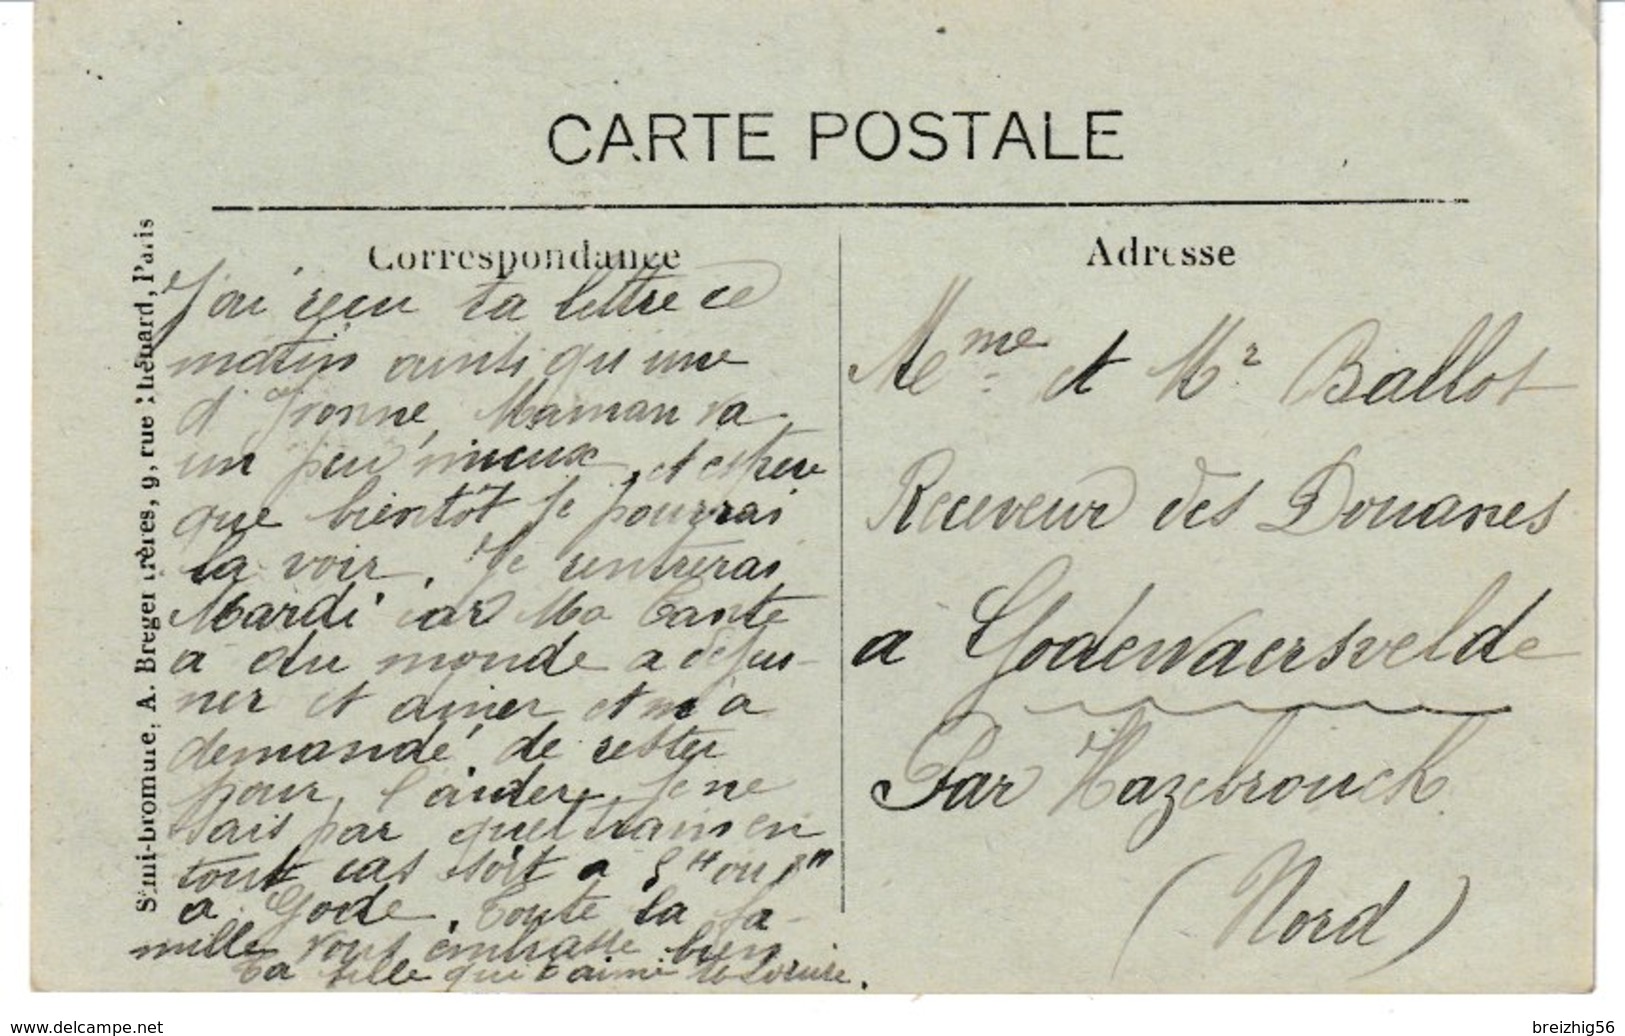 CARTE POSTALE
Correspondance
J'ai reçu ta lettre ce
matin ainsi qu'une
d'Yvonne, Maman va
un peu mieux, et espère
que bientôt je pourrai
la voir. Je rentrerai
Mardi car Ma Tante
a du monde a déjeu-
ner et a diner et m'a
demandé de rester
pour l'aider. Je ne
sais par quel train en
tout cas soit a 5 H ou 8 H
a Gode. Toute la fa-
mille vous embrasse bien
Ta fille qui t'aime
Adresse
Mme et Mr Ballot
Receveur des Douanes
a Godewaersvelde
Par Hazebrouck
(Nord)
Semi-bromure, A. Breger frères, 9, rue Thénard, Paris
www.delcampe.net
breizhig56